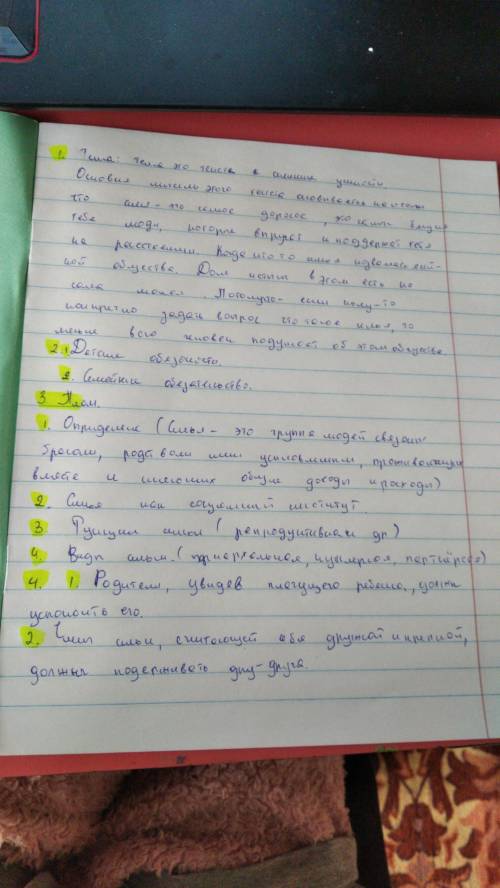 1. Тема: тема это текста о семейных ценностях
Основная мысль этого текста основывается на том
что семья - это самое дорогое, это самые близкие
тебе люди, которые и поддержат тебя
на расстоянии. Когда-то семья называлась ячей-
кой общества. Доля истины в этом есть но
сама малая. Потомучто если кому-то
конкретно задать вопрос что такое семья, то
менее всего человек подумает об этом обществе.
2. 1. Детские обязаности.
2. Семейные обязательства.
3 План.
1. Определение (Семья - это группа людей связаных
браком, родством или усыновлением, проживающих
вместе и имеющих общие доходы и расходы)
2. Семья как социальный институт.
3 Функции семьи (репродуктивная и др)
4. Виды семьи. (патриархальная, нуклеарная, партнёрская)
4. 1. Родители, увидев плачущего ребенка, должны
успокоить его.
2. Члены семьи, считающей себя дружной и крепкой,
должны поддерживать друг-друга.